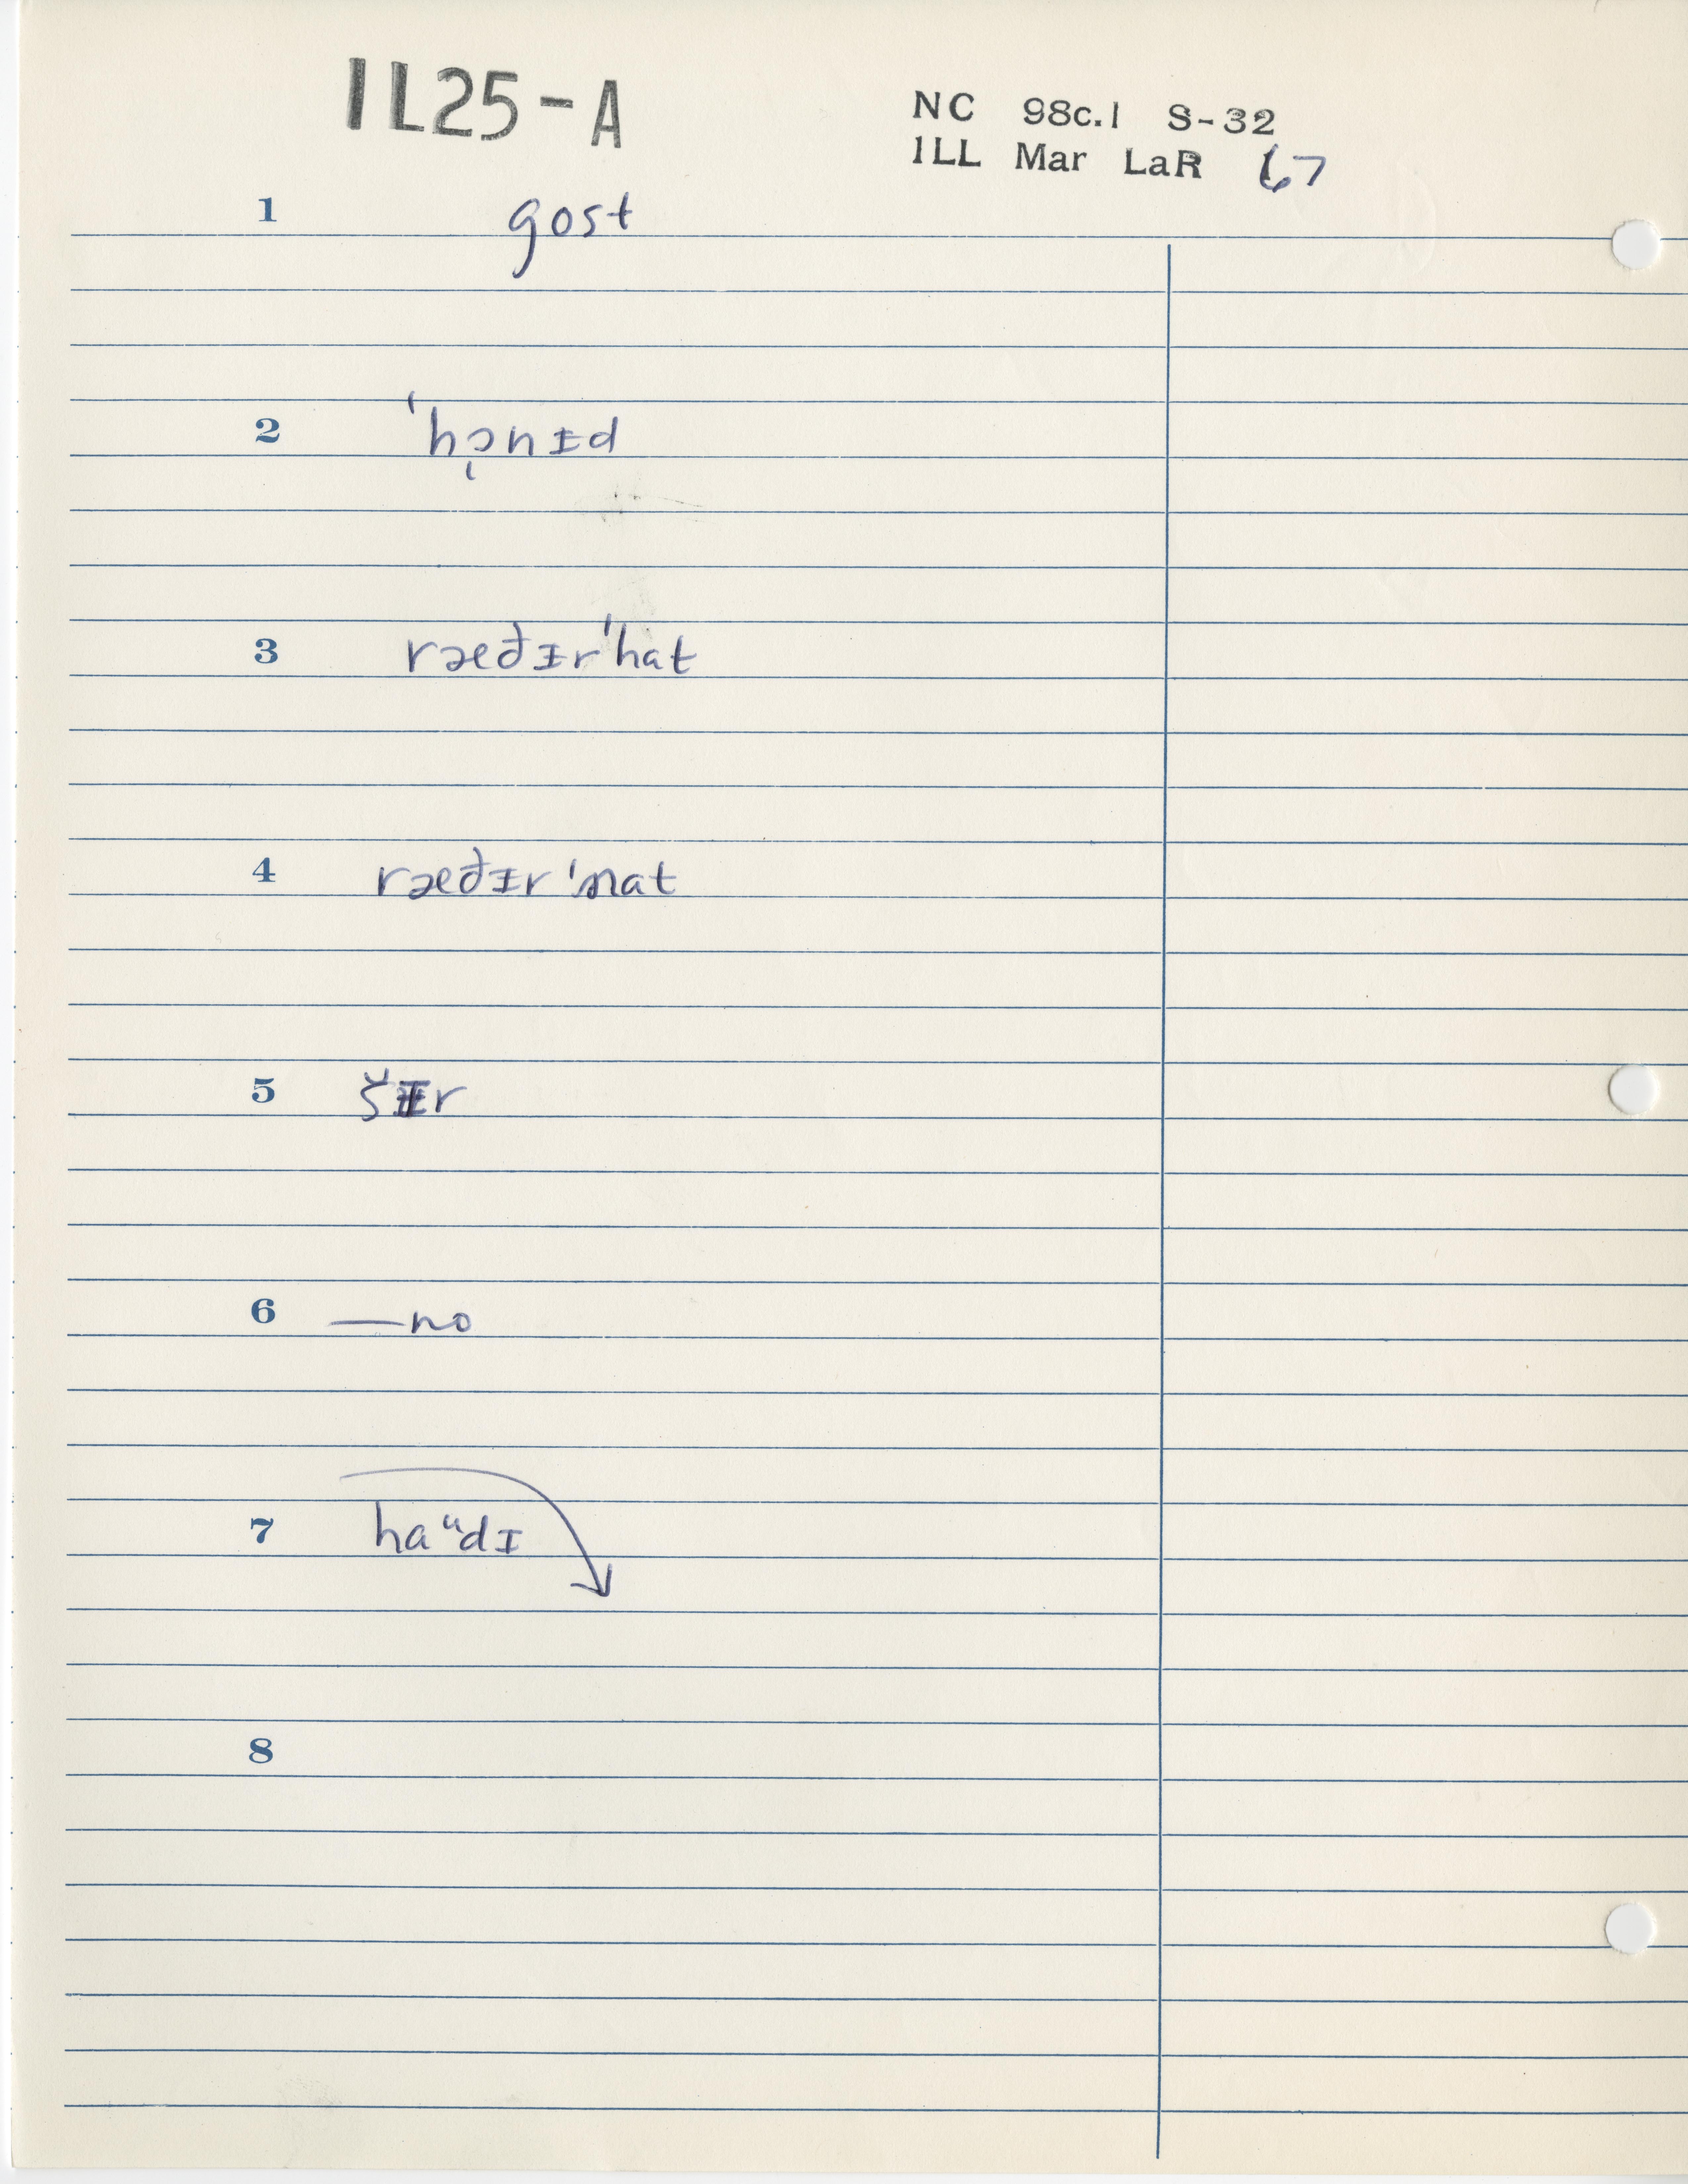 1L25-A
NC 98c.1 S-32
1LL Mar LaR 67
1 gost
2 ˈhɔ̜nᵻd
3 ræðᵻrˈhat
4 ræðᵻrˈnat
5 šᵻr
6 —no
7 haᵘdɪ
8